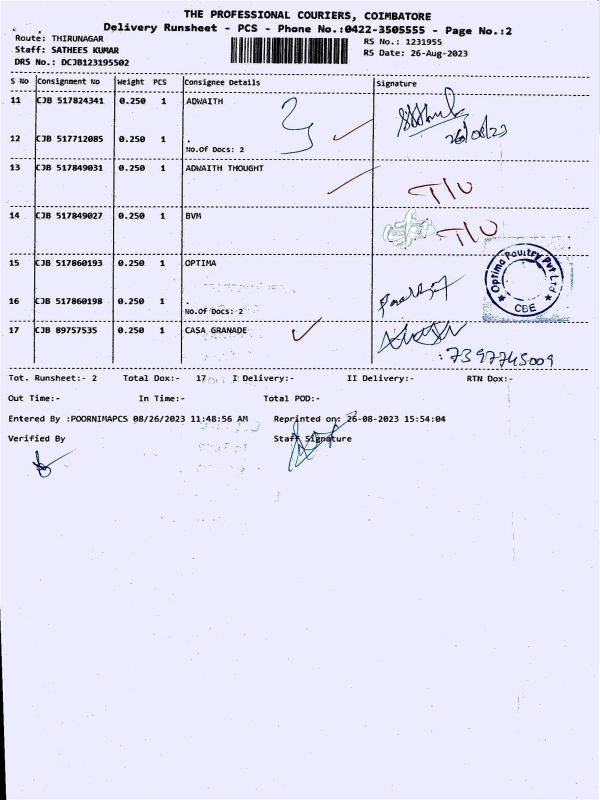 THE PROFESSIONAL COURIERS, COIMBATORE
Delivery Runsheet - PCS - Phone No.:0422-3505555 - Page No.:2
Route: THIRUNAGAR
RS No.: 1231955
Staff: SATHEES KUMAR
RS Date: 26-Aug-2023
DRS No.: DCJB123195502
S No Consignment No Weight PCS Consignee Details Signature
11 CJB 517824341 0.250 1 ADWAITH
26/08/23
12 CJB 517712085 0.250 1 .
No.Of Docs: 2
13 CJB 517849031 0.250 1 ADWAITH THOUGHT
T/U
14 CJB 517849027 0.250 1 BVM
T/U
15 CJB 517860193 0.250 1 OPTIMA
Optima Poultry Pvt Ltd
CBE
16 CJB 517860198 0.250 1 .
No.Of Docs: 2
17 CJB 89757535 0.250 1 CASA GRANADE
:7397745009
Tot. Runsheet:- 2 Total Dox:- 17 I Delivery:- II Delivery:- RTN Dox:-
Out Time:- In Time:- Total POD:-
Entered By :POORNIMAPCS 08/26/2023 11:48:56 AM Reprinted on: 26-08-2023 15:54:04
Verified By Staff Signature